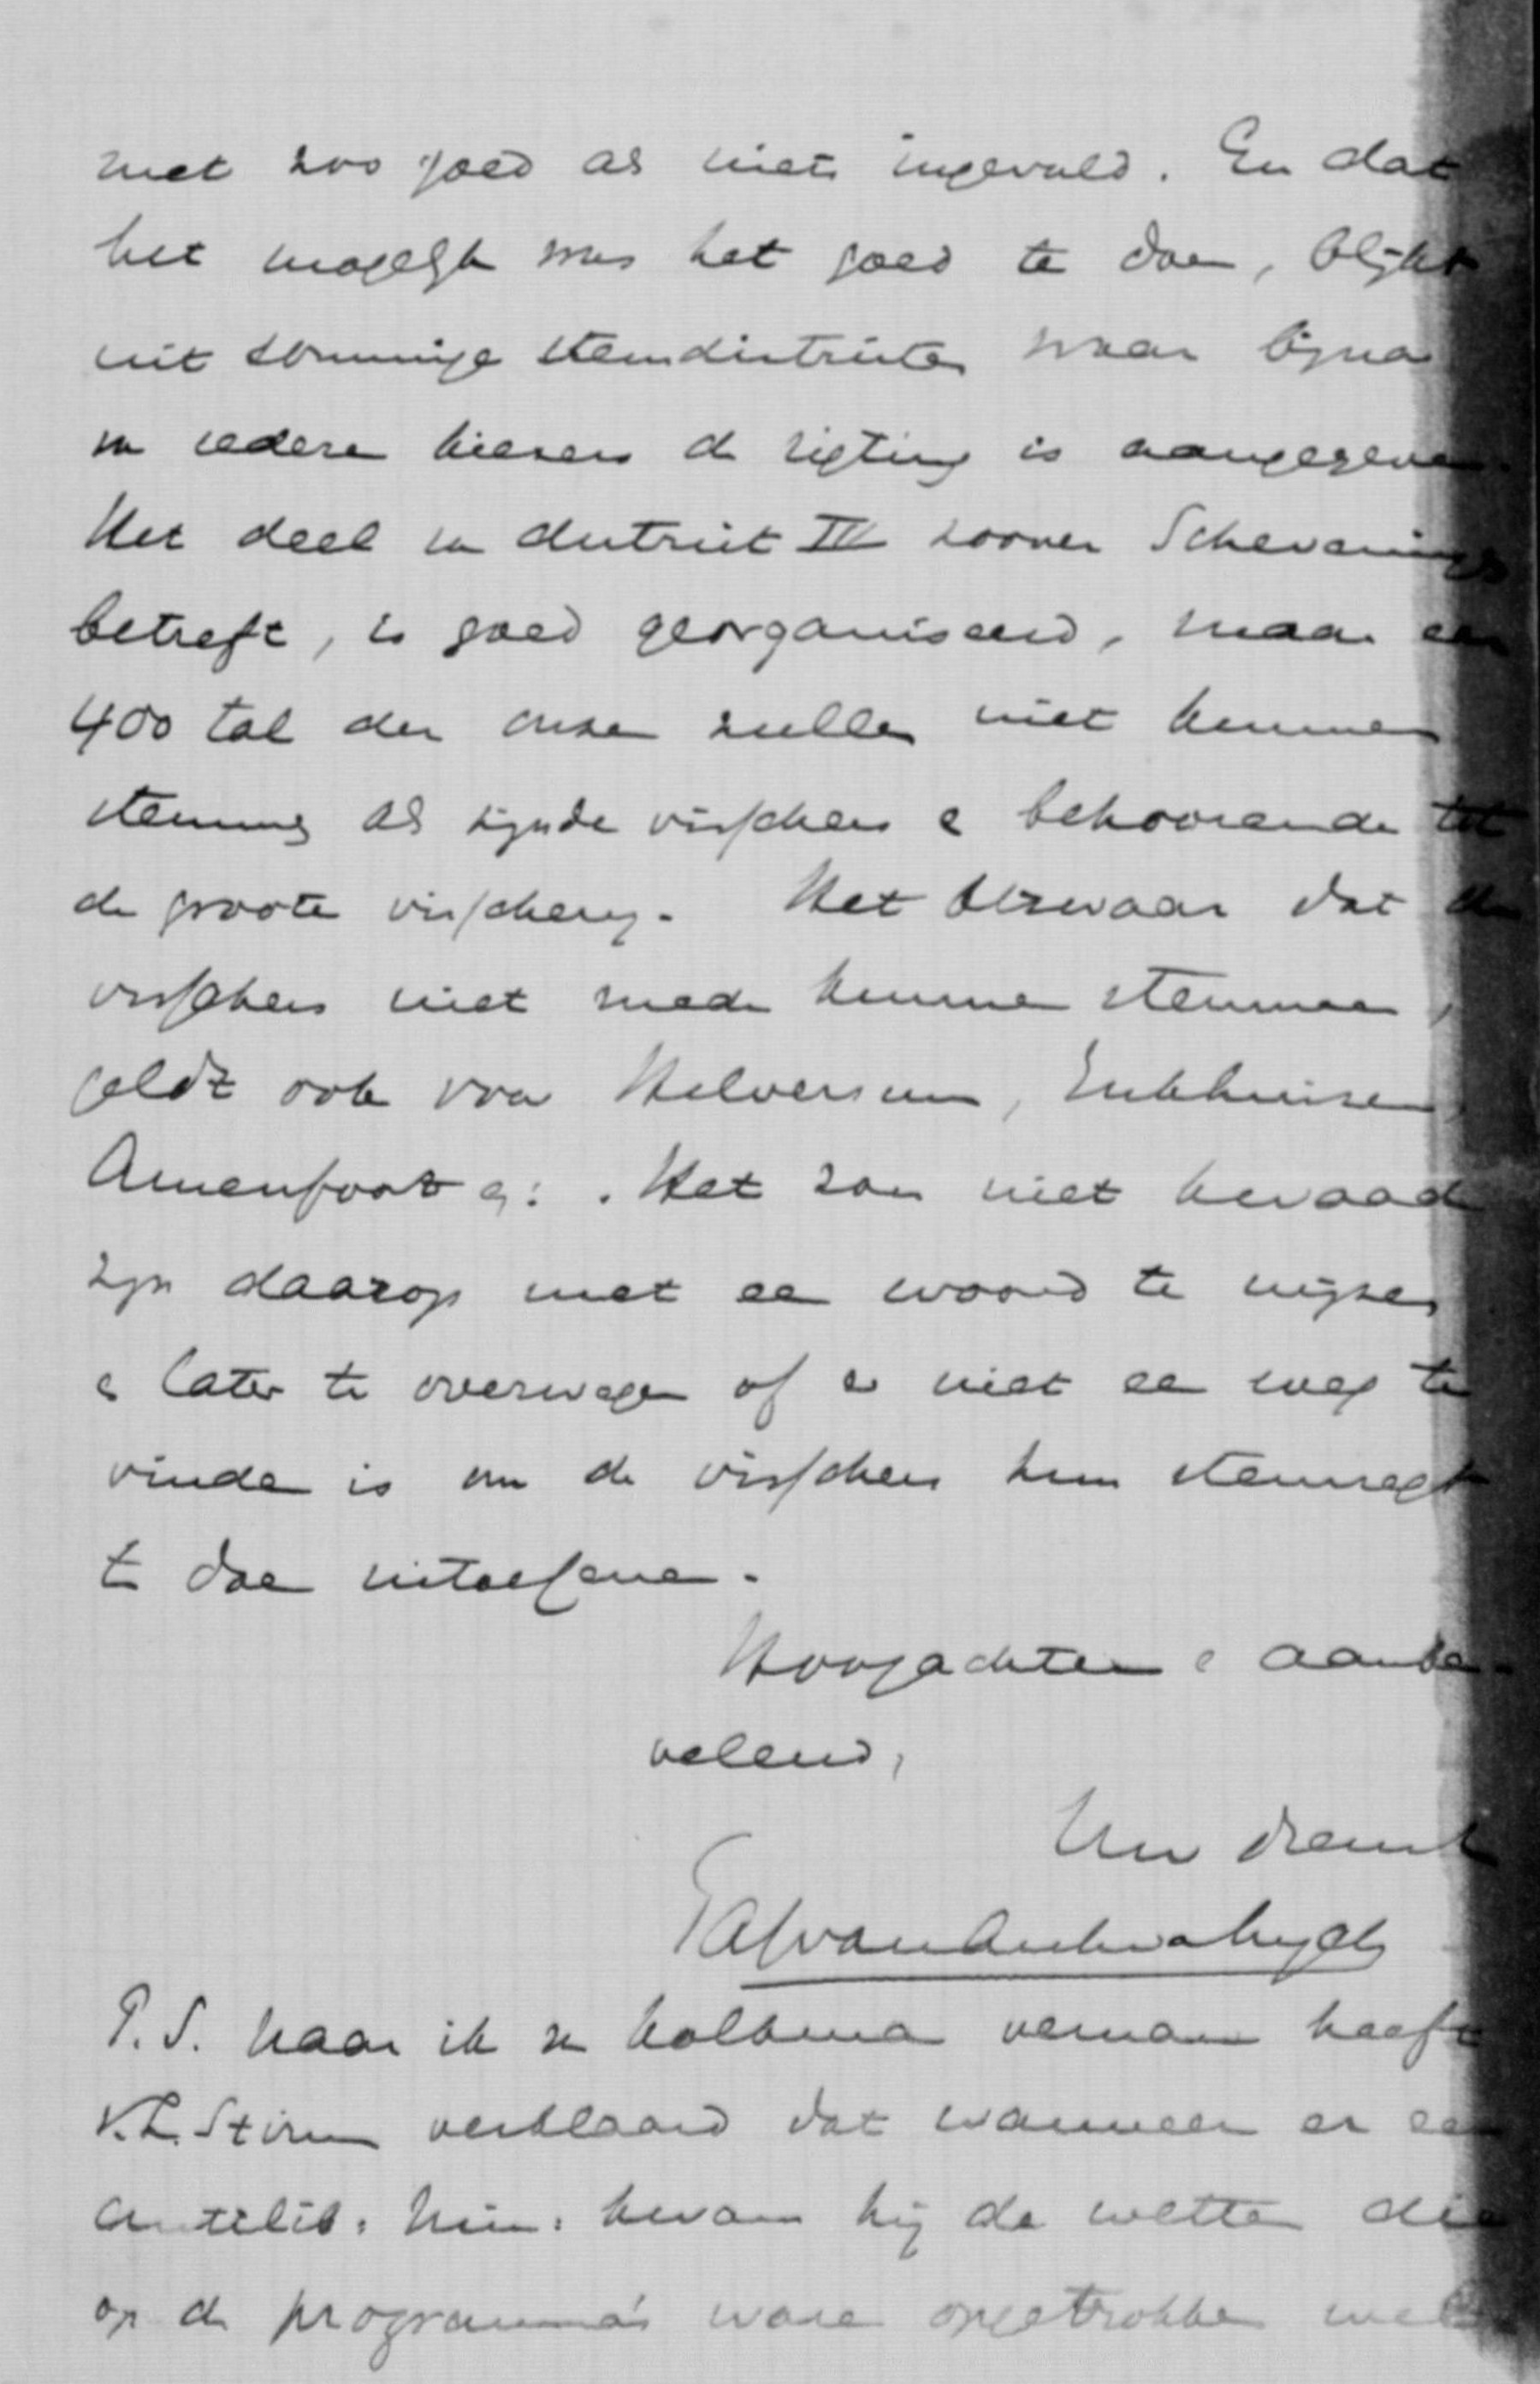 met zoo goed als niets ingevuld. En dat
het mogelijk was het goed te doen, blijkt
uit sommige stemdistricten waar bijna
van iedere kiezers de rigting is aangegeven.
Het deel van district III zoover Schevenings
betreft, is goed georganiseerd, maar een
400 tal der onzen zullen niet kunnen
stemmen als zijnde visschers e behoorende tot
de groote visscherij. Het bezwaar dat de
visschers niet mede kunnen stemmen,
geldt ook voor Hilversum, Enkhuizen,
Amersfoort . Het zou niet kwaad
zijn daarop met een woord te wijzen
e later te overwegen of er niet een weg te
vinden is om de visschers hun stemregt
te doen uitoefenen.
Hoogachtend e aanbe-
velend,
Uw dienst
P.S. Naar ik van Kolkman vernam heeft
v. L. Stirum verklaard dat wanneer er een
antilib. Min. kwam hij de wetten die
op de programma's ware opgetrokken